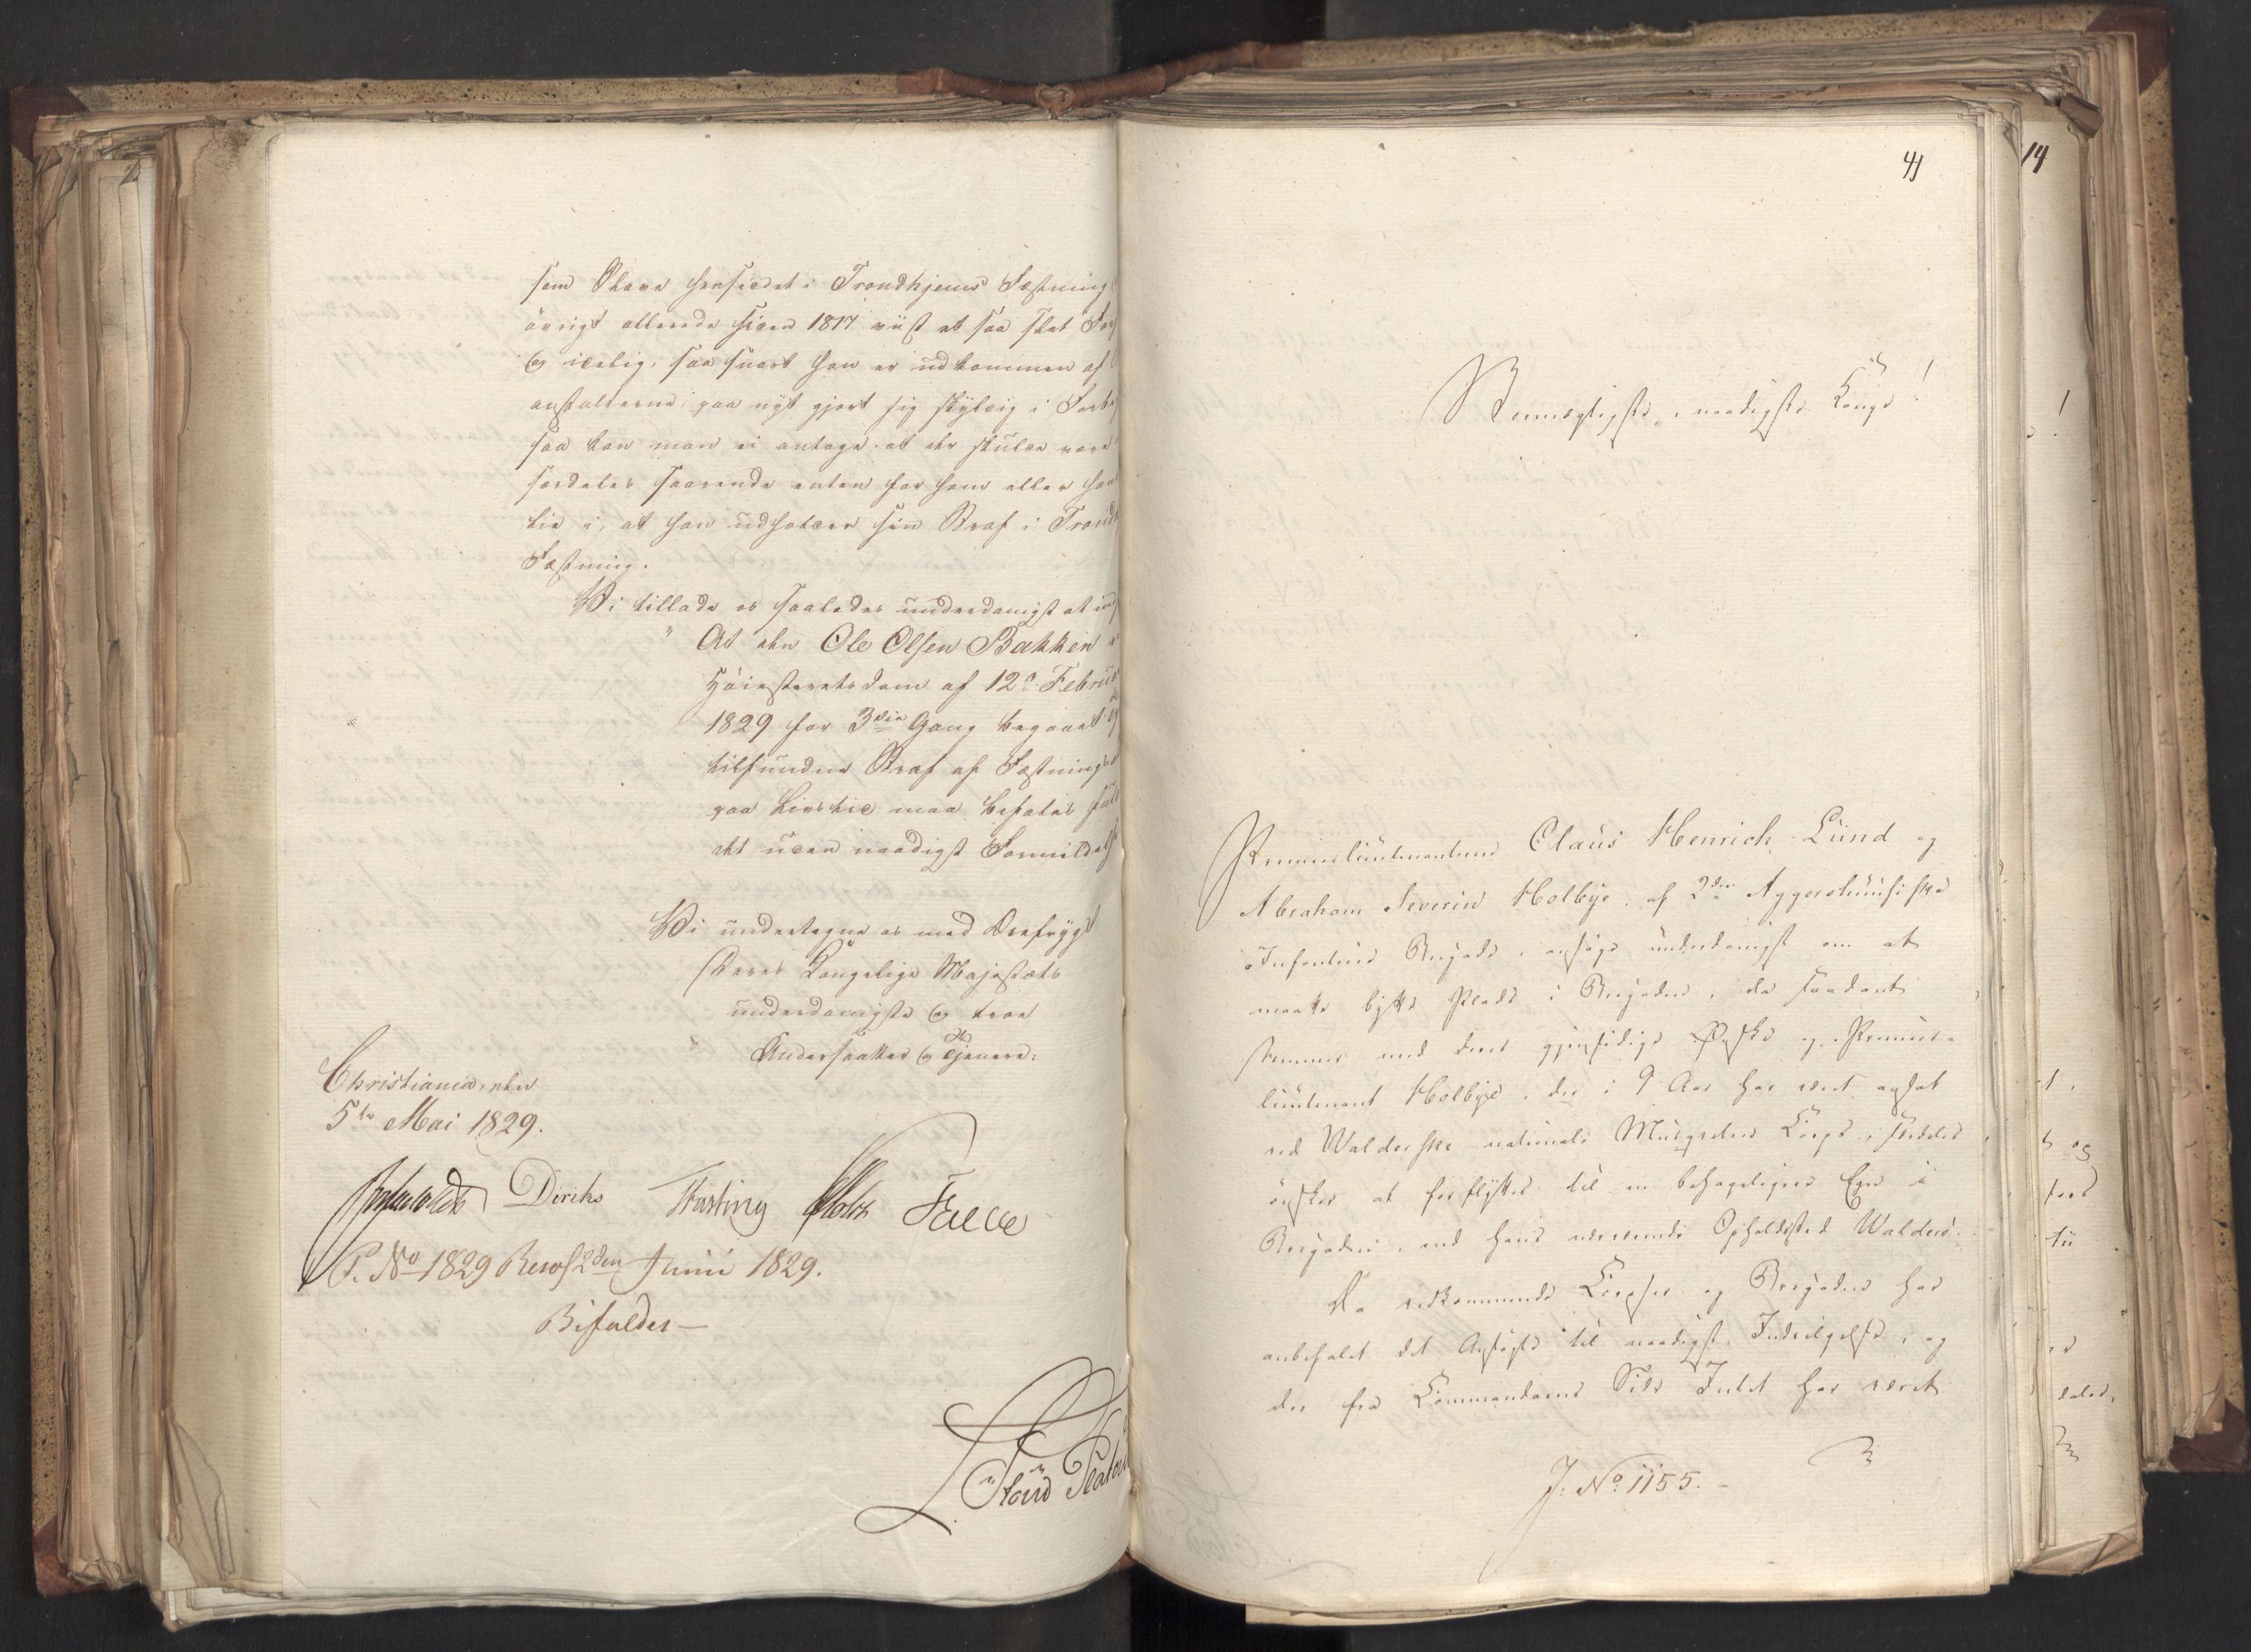 som Slave hensiddet i Trondhjems Fæstning
övrigt allerede siden 1817 viist et saa slet
og idelig, saa snart han er udkommen af
anstalterne, paa nyt gjort sig skyldig i
saa kan man ei antage, at der skulde være
særdeles saarende enten for ham eller
i, at han udholder sin Straf i
Fæstning.
Vi tillade os saaledes underdanigst at
" At den Ole Olsen Bakken
Höiesteretsdom af 12te
1829 for 3die Gang begaaet
tilfundne Straf af
paa Livstid maa befales
det uden naadigst
Vi undertegne os med Ærefrygt
Deres Kongelige Majestæts
underdanigste og troe
Undersaatter og Tjenere.
Christiania, den
5te Mai 1829.
Diriks Fasting Holst Falbe
P. No 1829 Resol 2den Junii 1829.
Bifaldes —
41
14
Stormægtigste, naadigste Konge!
Premierlieutenanterne Claus Henrich Lund og
Abraham Severin Holbye, af 2den Aggershuusiske
Infanterie Brigade, ansöge underdanigst om at
maatte bytte Plads i Brigaden, da saadant
stemmer med deres gjensidige Ønske og Premier-
lieutenant Holbye, der i 9 Aar har været ansat
ved Walderske nationale Musqueteer Corps, særdeles
önsker at forflyttes til en behageligere Egn i
Brigaden, end hans nærværende Opholdssted Walders.
Da vedkommende Corpser og Brigaden har
anbefalet det Ansögte til naadigst Indvilgelse, og
der fra Commandoens Side Intet har været
J: No 1155.